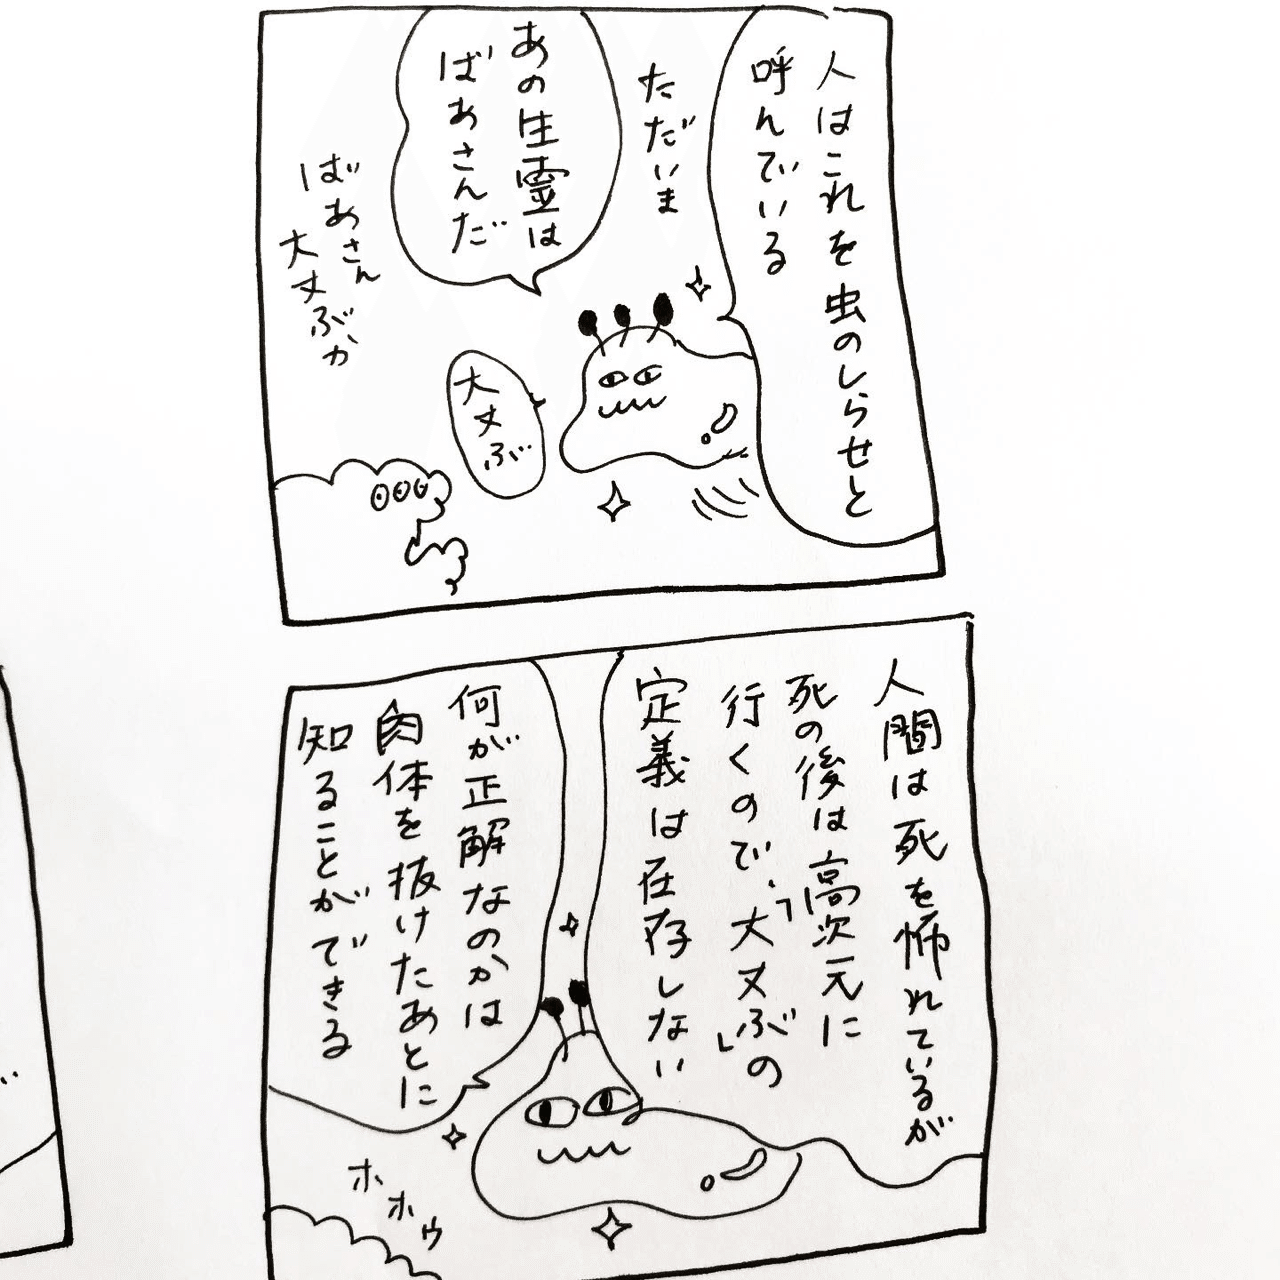 人はこれを虫のしらせと
呼んでいる
ただいま
あの生霊は
ばあさんだ
大丈ぶ
ばあさん
大丈ぶか
人間は死を怖れているが
死の後は高次元に
行くので、「大丈ぶ」の
定義は在存しない
何が正解なのかは
肉体を抜けたあとに
知ることができる
ホホウ